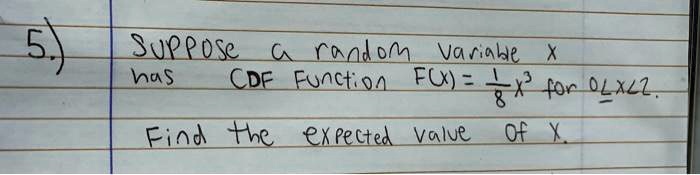 5.) Suppose a random variable X
has CDF Function F(x) = 1/8 x³ for 0≤x<2.
Find the expected value of X.